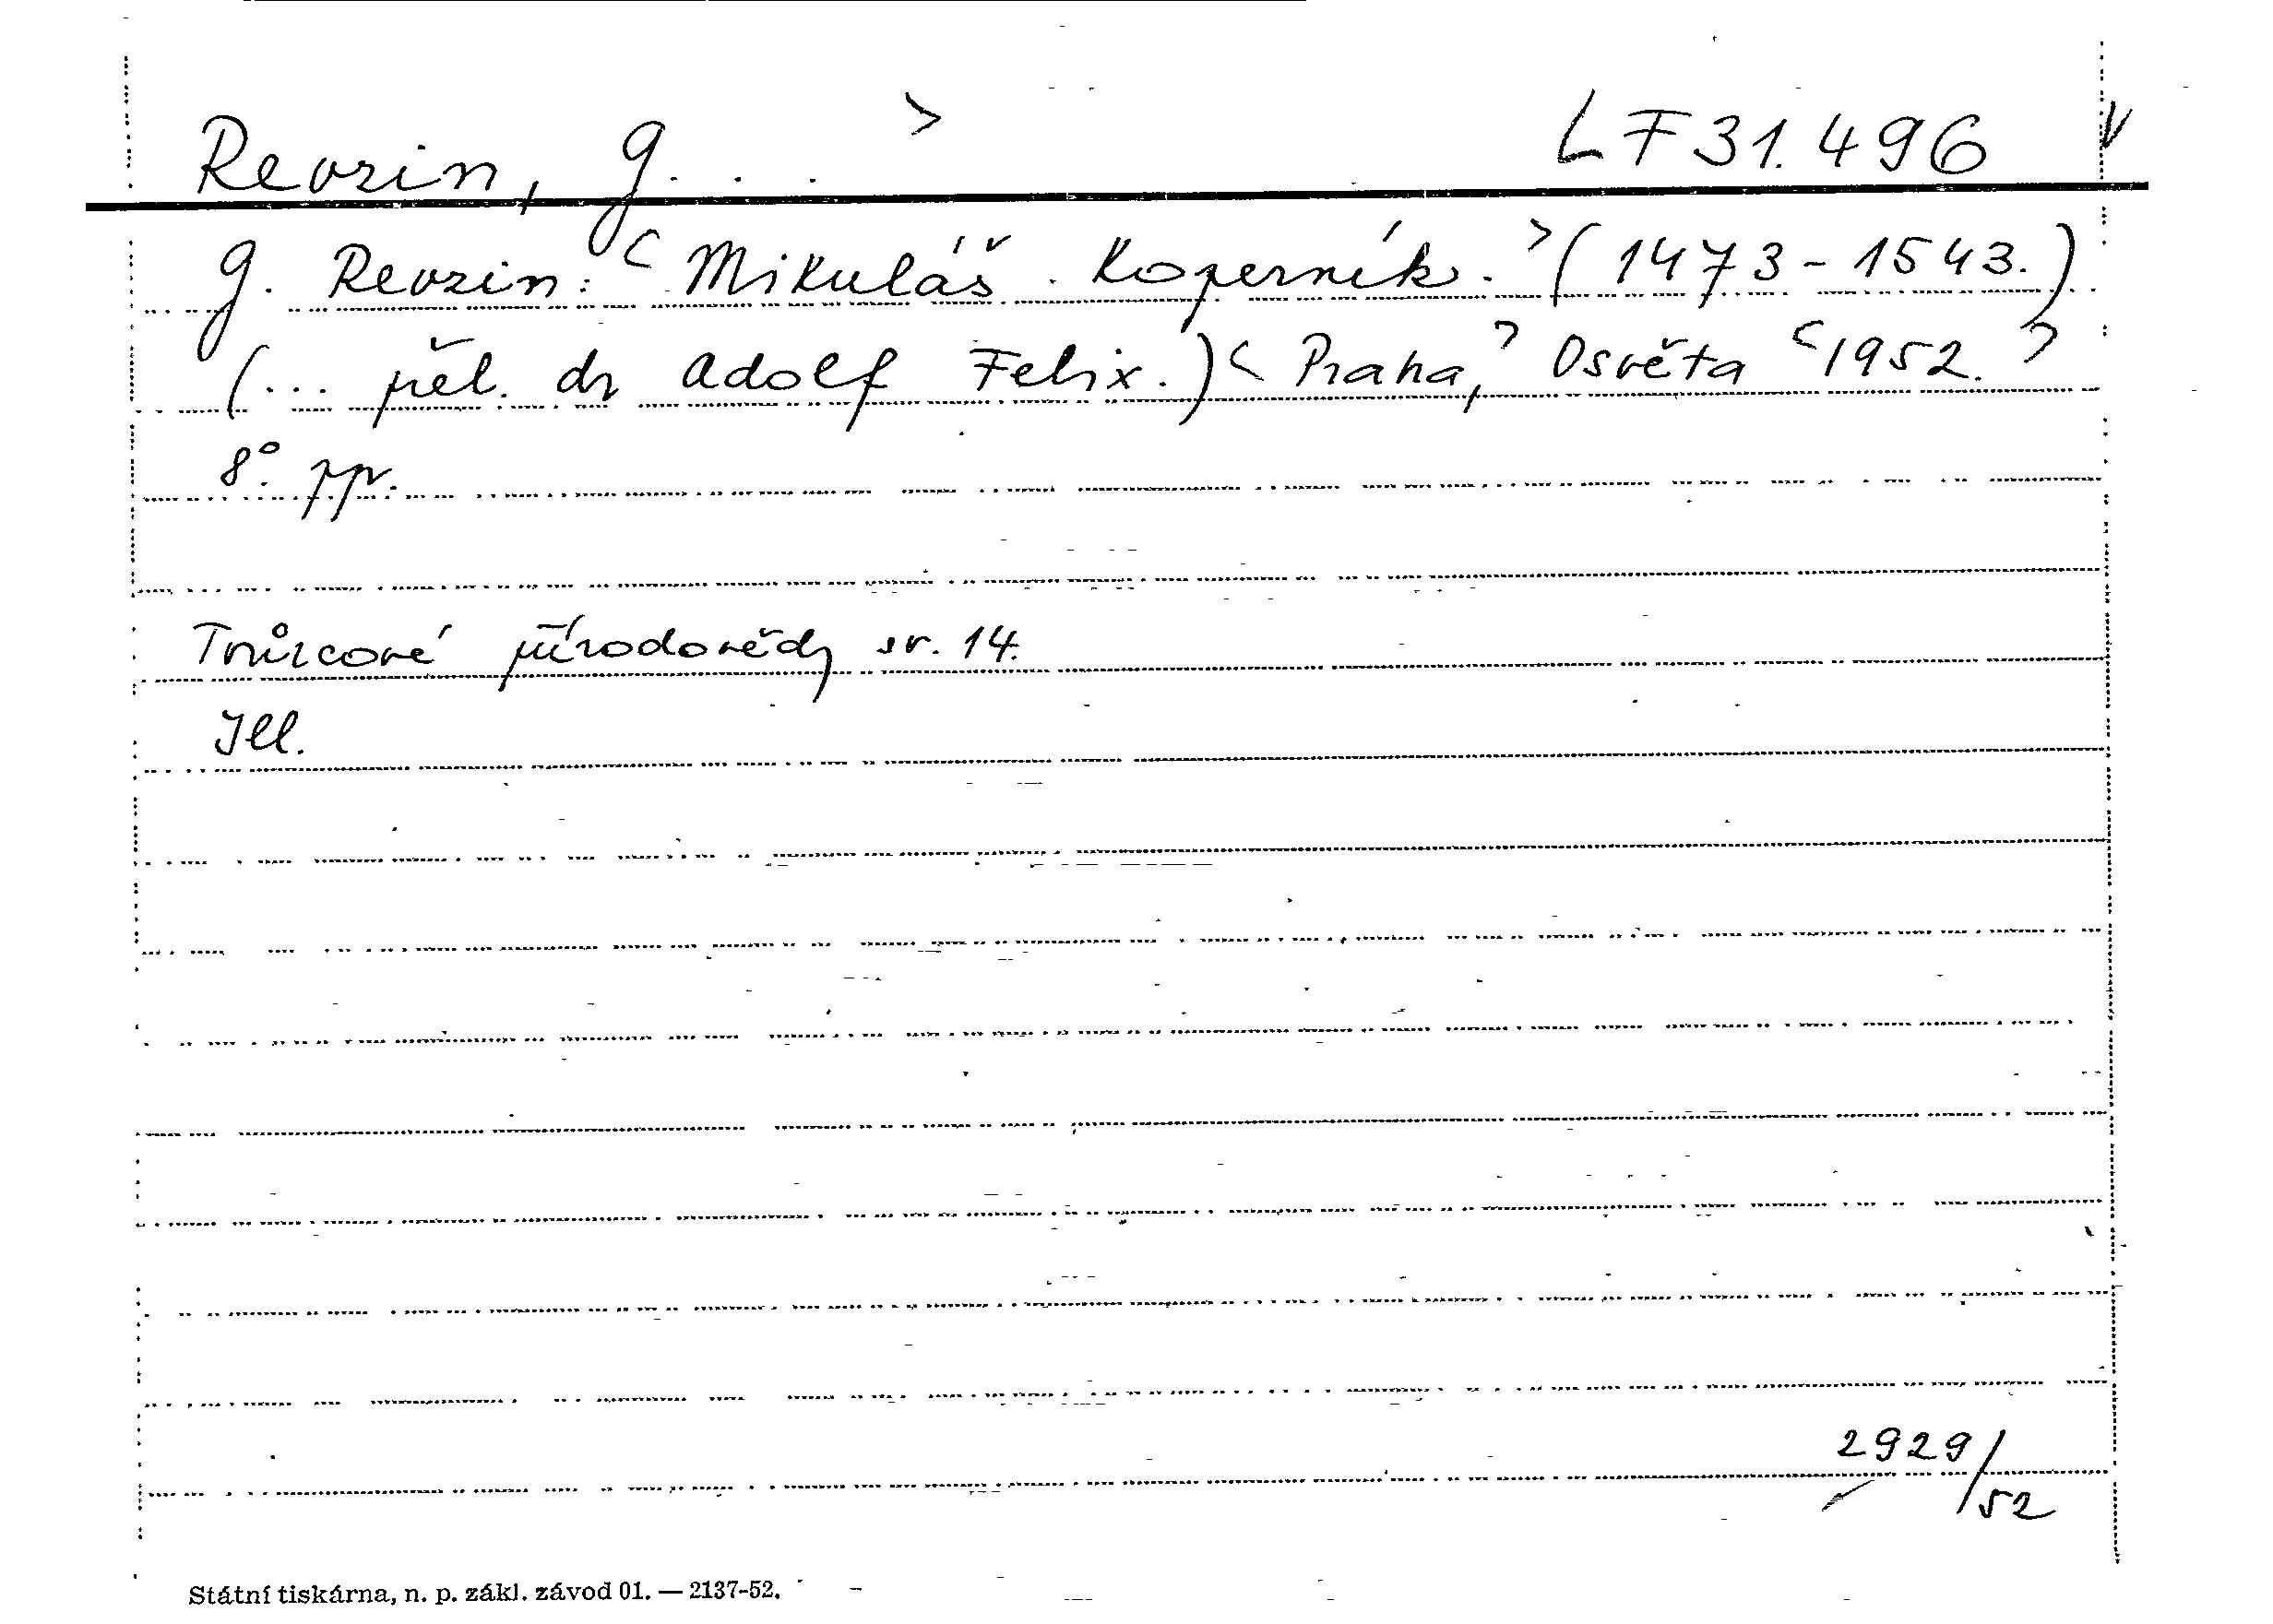 Revzin, G. . . > LF 31.496 V
G. Revzin: < Mikuláš Koperník. > (1473-1543.)
(... přel. dr Adolf Felix.) < Praha, > Osvěta < 1952. >
8°. ppr.
Tvůrcové přírodovědy sv. 14.
Ill.
2929/52
Státní tiskárna, n. p. zákl. závod 01. — 2137-52.